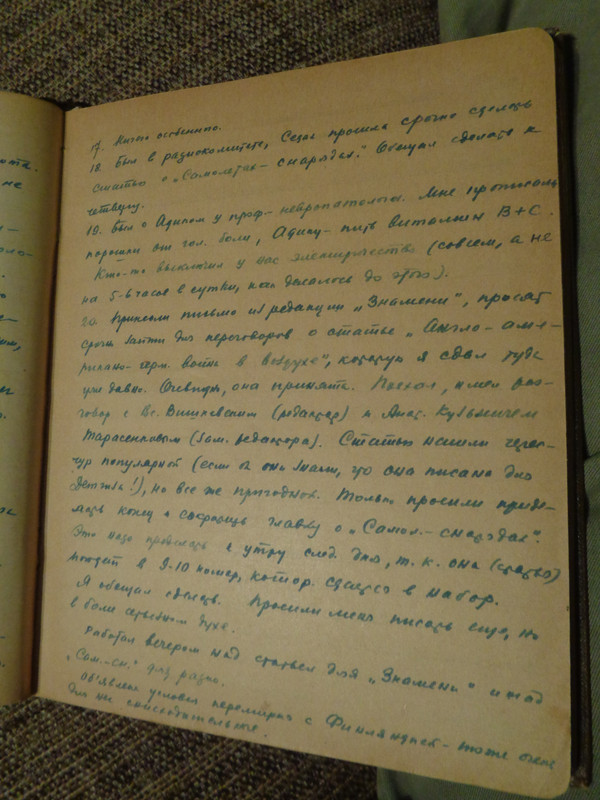 17. Ничего особенного.
18. Был в радиокомитете, Седая просила срочно сделать
статью о „Самолетах-снарядах." Обещал сделать к
четвергу.
19. Был с Адиком у проф-невропатолога. Мне прописали
порошки от гол. боли, Адику- пить витамин B+C.
Кто-то выключил у нас электричество (совсем, а не
на 5-6 часов в сутки, как делалось до этого).
20. Принесли письмо из редакции „Знамени", просят
срочно зайти для переговоров о статье „Англо-аме-
рикано-герм. война в воздухе", которую я сдал туда
уже давно. Очевидно, она принята. Поехал, имел раз-
говор с Вс. Вишневским (редактор) и Анат. Кузьмичем
Тарасенковым (зам. редактора). Статью нашли чересч-
чур популярной (если б они знали, что она писана для
Детгиза!), но все же пригодной. Только просили приде-
лать конец и сократить главку о „Самол.-снарядах".
Это надо проделать к утру след. дня, т. к. она (статья)
пойдет в 9-10 номер, котор. сдается в набор.
Я обещал сделать. Просили меня писать еще, но
в более серьезном духе.
Работал вечером над статьей для „Знамени" и над
„Сам.-сн." для радио.
Об'явлены условия перемирия с Финляндией- тоже очень
для них снисходительные.